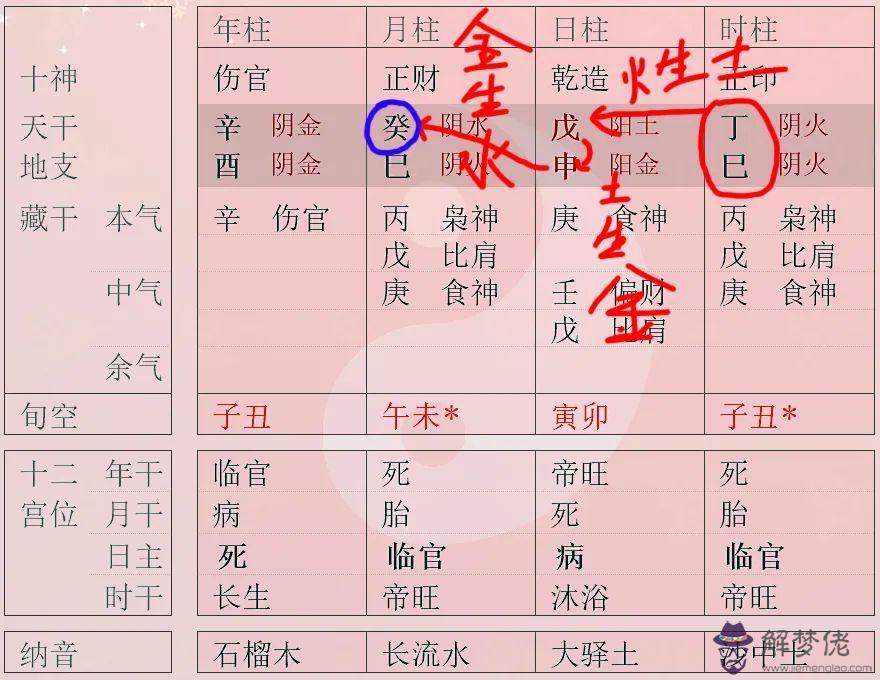 年柱 月柱 日柱 时柱
十神 伤官 正财 乾造 正印
金生水
火生土
天干 辛 阴金 癸 阴水 戊 阳土 丁 阴火
地支 酉 阴金 巳 阴火 申 阳金 巳 阴火
土生金
藏干 本气 辛 伤官 丙 枭神 庚 食神 丙 枭神
戊 比肩 戊 比肩
中气 庚 食神 壬 偏财 庚 食神
戊 比肩
余气
旬空 子丑 午未* 寅卯 子丑*
十二 年干 临官 死 帝旺 死
宫位 月干 病 胎 死 胎
日主 死 临官 病 临官
时干 长生 帝旺 沐浴 帝旺
纳音 石榴木 长流水 大驿土 沙中土
解梦佬
www.jiemenglao.com